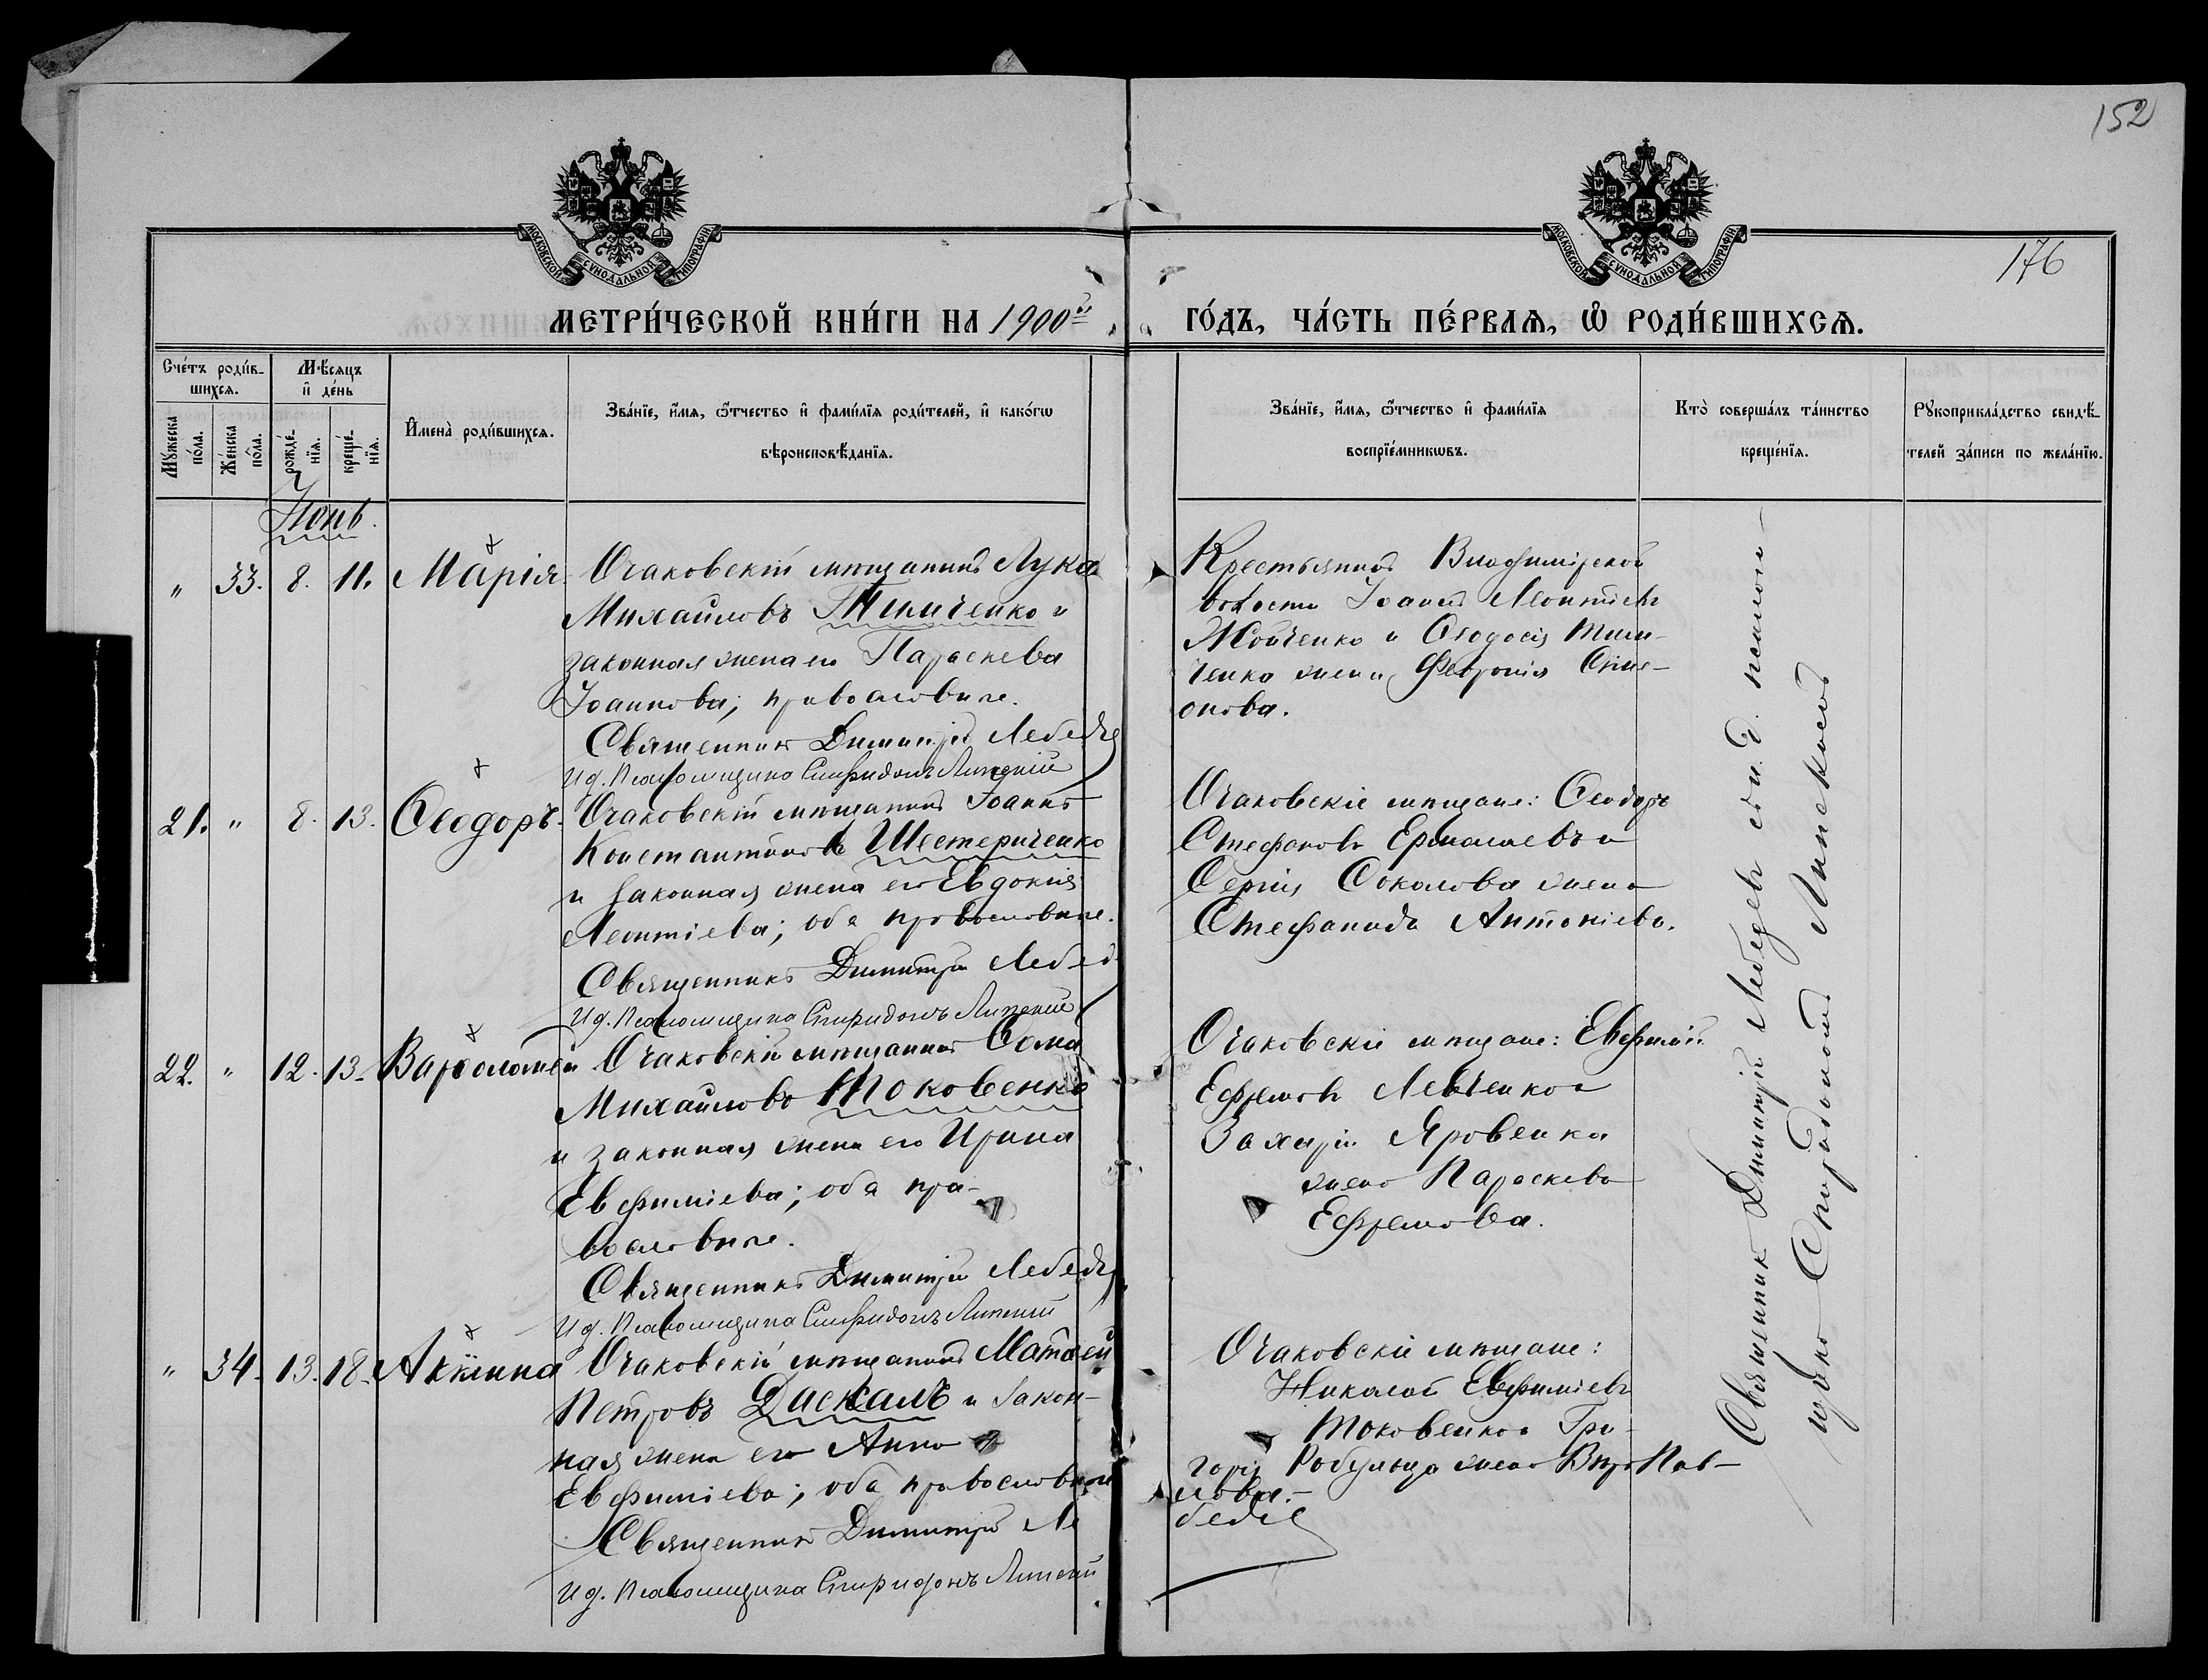 152
176
МОСКОВСКОЙ СѴНОДАЛЬНОЙ ТИПОГРАФІИ
МОСКОВСКОЙ СѴНОДАЛЬНОЙ ТИПОГРАФІИ
МЕТРИ́ЧЕСКОЙ КНИ́ГИ НА 1900й
ГО́ДЪ, ЧА́СТЬ ПЕ́РВАѦ, Ѡ҆ РОДИ́ВШИХСѦ.
Сче́тъ роди́в-
шихсѧ.
Мѣ́сѧцъ
и҆ де́нь
Мꙋ́жеска
по́ла.
Же́нска
по́ла.
рожде́-
нїѧ.
креще́-
нїѧ.
И҆мена̀ роди́вшихсѧ.
Зва́нїе, и҆́мѧ, ѻ҆́тчество и҆ фами́лїѧ роди́телей, и҆ како́гѡ
вѣроисповѣ́данїѧ.
Зва́нїе, и҆́мѧ, ѻ҆́тчество и҆ фами́лїѧ
воспрїе́мникѡвъ.
Кто̀ соверша́лъ та́инство
креще́нїѧ.
Рꙋкоприкла́дство свидѣ́-
телей за́писи по жела́нїю.
" 33. 8. 11. Марія
Очаковскій мѣщанинъ Лука
Михайловъ Тимченко и
законная жена его Параскева
Іоаннова; православные.
Священникъ Димитрій Лебедев
И.д. Псаломщика Спиридонъ Липскій
Крестьянинъ Владимірской
волости Іоаннъ Леонтіевъ
Мойченко и Ѳеодосія Тим-
ченко жена Февронія Симе-
онова.
21. " 8. 13. Ѳеодоръ.
Очаковскій мѣщанинъ Іоаннъ
Константиновъ Шестериченко
и законная жена его Евдокия
Леонтіева; оба православные.
Священникъ Димитрій Лебед
И.д. Псаломщика Спиридонъ Липскій
Очаковскіе мѣщане: Ѳеодоръ
Стефановъ Ермолаевъ и
Сергія Соколова жена
Стефанида Антоніева.
22. " 12. 13. Варѳоломей
Очаковскій мѣщанинъ Ѳома
Михайловъ Токовенко
и законная жена его Ирина
Евфиміева; оба пра-
вославные.
Священникъ Димитрій Лебедев
И.д. Псаломщика Спиридонъ Липскій
Очаковскіе мѣщане: Евфимій
Ефремовъ Левченко и
Захарія Яровенка
жена Параскева
Ефремова.
" 34. 13. 18. Акилина
Очаковскій мѣщанинъ Матѳей
Петровъ Даскалъ и закон-
ная жена его Анна
Евфиміева; оба православные
Священникъ Димитрій Ле
бедев
И.д. Псаломщика Спиридонъ Липскій
Очаковскіе мѣщане:
Николай Евфиміевъ
Токовенко и Гри-
горія жена Вѣра Пав-
лова.
Священникъ Димитрій Лебедевъ съ и. д. псалом-
щика Спиридономъ Липскимъ